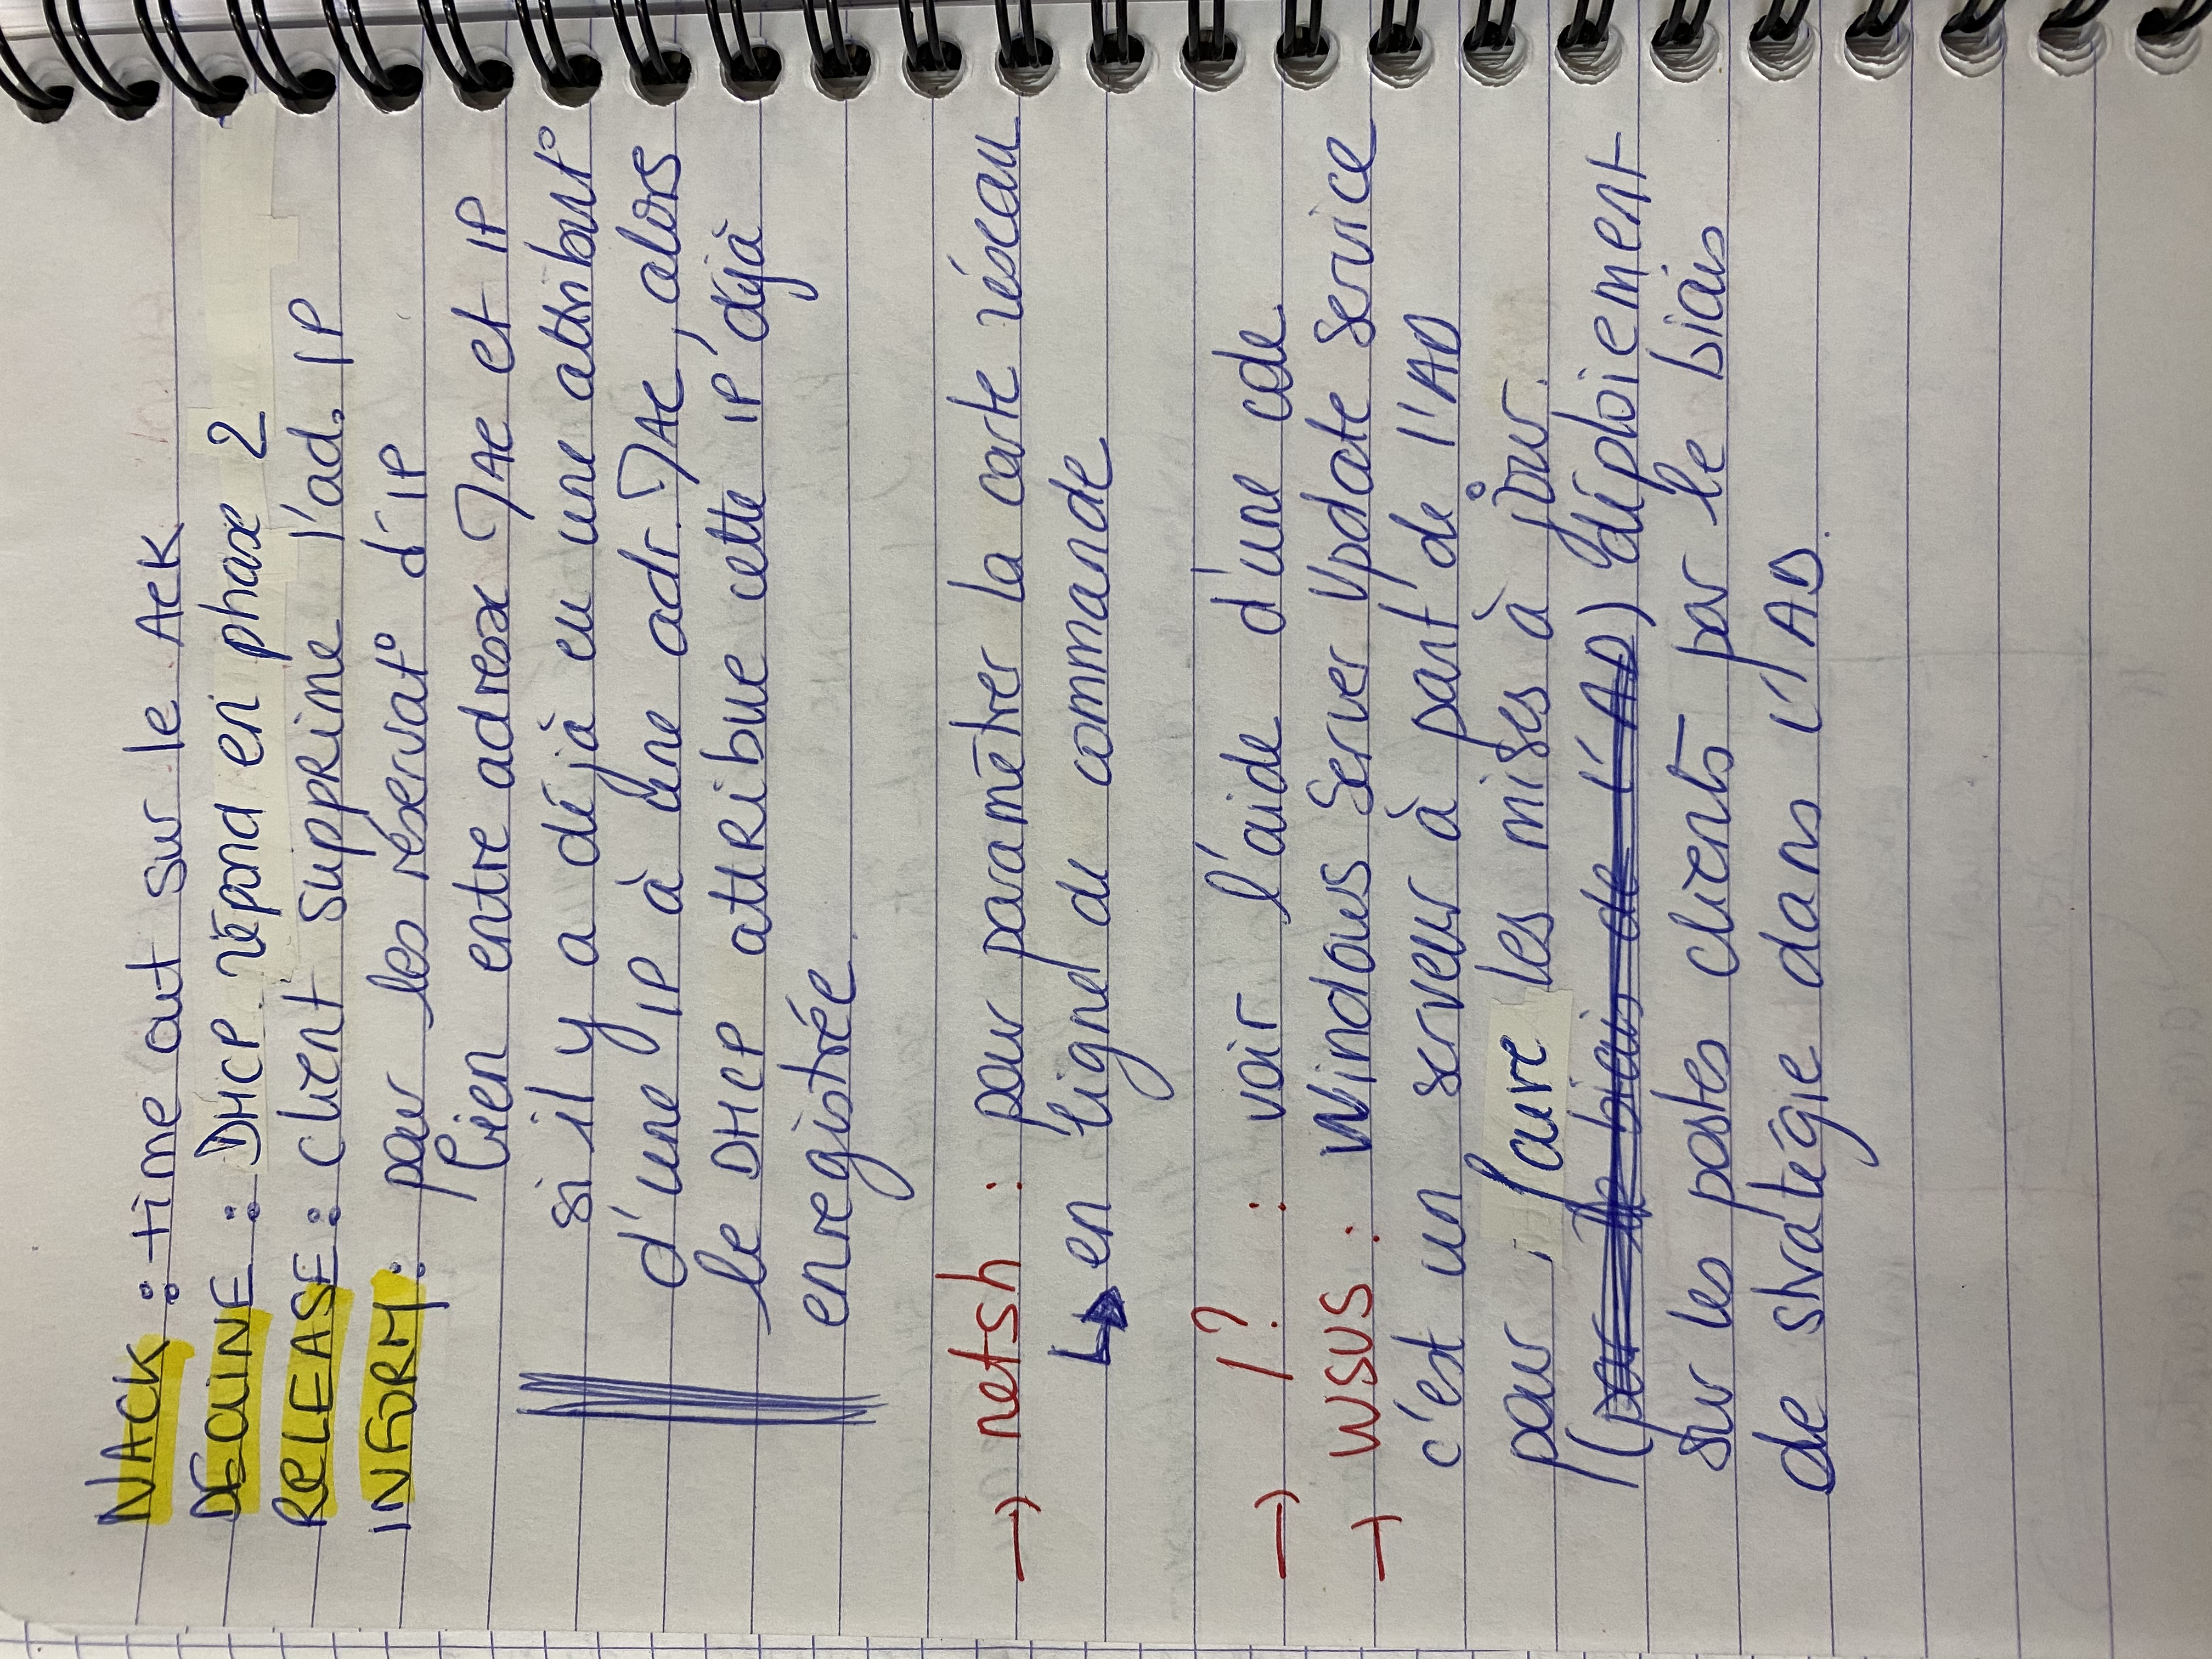 NACK : time out sur le ACK
DECLINE : DHCP répond en phase 2
RELEASE : client supprime l'ad. IP
INFORM : pour les réservat° d'IP
lien entre adresse MAC et IP
si il y a déjà eu une attribut°
d'une IP à une adr. MAC, alors
le DHCP attribue cette IP déjà
enregistrée.
→ netsh : pour paramétrer la carte réseau
↳ en ligne de commande
→ /? : voir l'aide d'une cde
→ WSUS : Windows Server Update Service
c'est un serveur à part de l'AD
pour faire les mises à jour.
(par le biais de l'AD) déploiement
sur les postes clients par le biais
de stratégie dans l'AD.